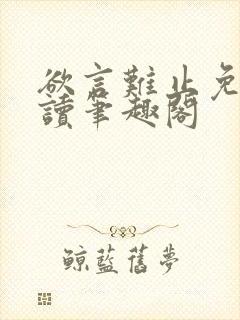 欲言難止免
讀筆趣閣
鯨藍舊夢